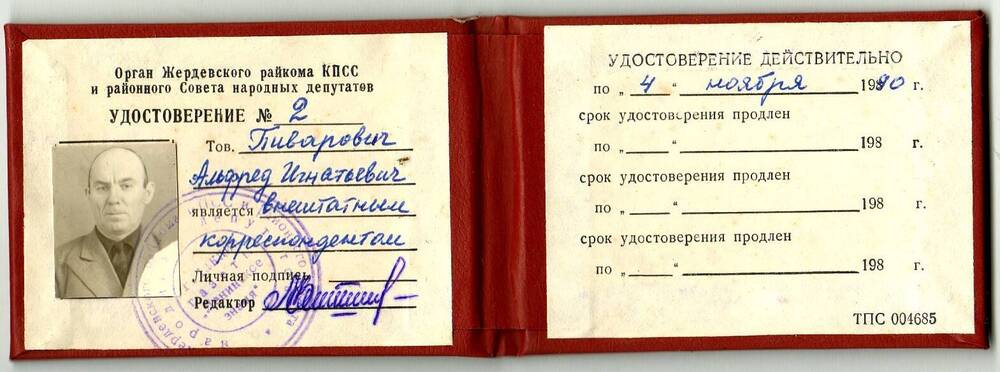 Орган Жердевского райкома КПСС
и районного Совета народных депутатов
УДОСТОВЕРЕНИЕ № 2
Тов. Пиварович
Альфред Игнатьевич
является внештатным
корреспондентом
Личная подпись
Редактор
УДОСТОВЕРЕНИЕ ДЕЙСТВИТЕЛЬНО
по „ 4 “ ноября 1990 г.
срок удостоверения продлен
по „ “ 198 г.
срок удостоверения продлен
по „ “ 198 г.
срок удостоверения продлен
по „ “ 198 г.
ТПС 004685